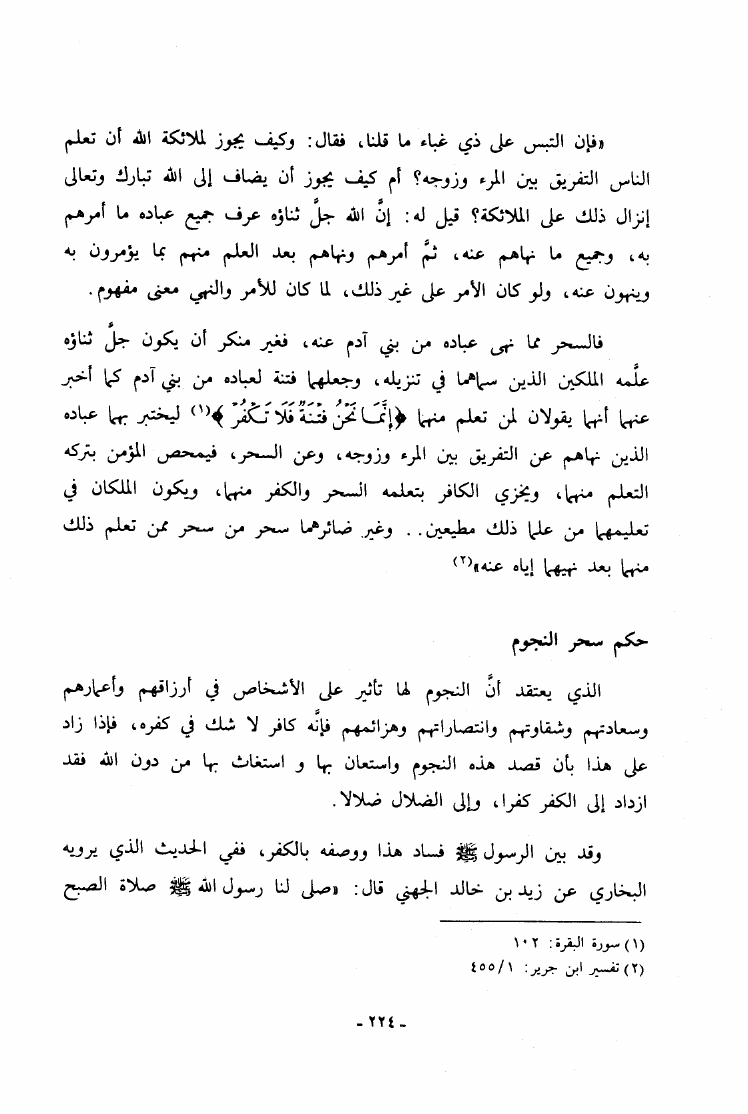 «فإن التبس على ذي غباء ما قلنا، فقال: وكيف يجوز لملائكة الله أن تعلم
الناس التفريق بين المرء وزوجه؟ أم كيف يجوز أن يضاف إلى الله تبارك وتعالى
إنزال ذلك على الملائكة؟ قيل له: إنَّ الله جلَّ ثناؤه عرف جميع عباده ما أمرهم
به، وجميع ما نهاهم عنه، ثمَّ أمرهم ونهاهم بعد العلم منهم بما يؤمرون به
وينهون عنه، ولو كان الأمر على غير ذلك، لما كان للأمر والنهي معنى مفهوم.
فالسحر مما نهى عباده من بني آدم عنه، فغير منكر أن يكون جلَّ ثناؤه
علَّمه الملكين الذين سماهما في تنزيله، وجعلهما فتنة لعباده من بني آدم كما أخبر
عنهما أنهما يقولان لمن تعلم منهما ﴿إِنَّمَا نَحْنُ فِتْنَةٌ فَلَا تَكْفُرْ﴾(١) ليختبر بهما عباده
الذين نهاهم عن التفريق بين المرء وزوجه، وعن السحر، فيمحص المؤمن بتركه
التعلم منهما، ويخزي الكافر بتعلمه السحر والكفر منهما، ويكون الملكان في
تعليمهما من علما ذلك مطيعين.. وغير ضائرهما سحر من سحر ممن تعلم ذلك
منهما بعد نهيهما إياه عنه»(٢)
حكم سحر النجوم
الذي يعتقد أنَّ النجوم لها تأثير على الأشخاص في أرزاقهم وأعمارهم
وسعادتهم وشقاوتهم وانتصاراتهم وهزائمهم فإنَّه كافر لا شك في كفره، فإذا زاد
على هذا بأن قصد هذه النجوم واستعان بها و استغاث بها من دون الله فقد
ازداد إلى الكفر كفرا، وإلى الضلال ضلالا.
وقد بين الرسول ﷺ فساد هذا ووصفه بالكفر، ففي الحديث الذي يرويه
البخاري عن زيد بن خالد الجهني قال: «صلى لنا رسول الله ﷺ صلاة الصبح
(١) سورة البقرة: ١٠٢
(٢) تفسير ابن جرير: ٤٥٥/١
- ٢٢٤ -